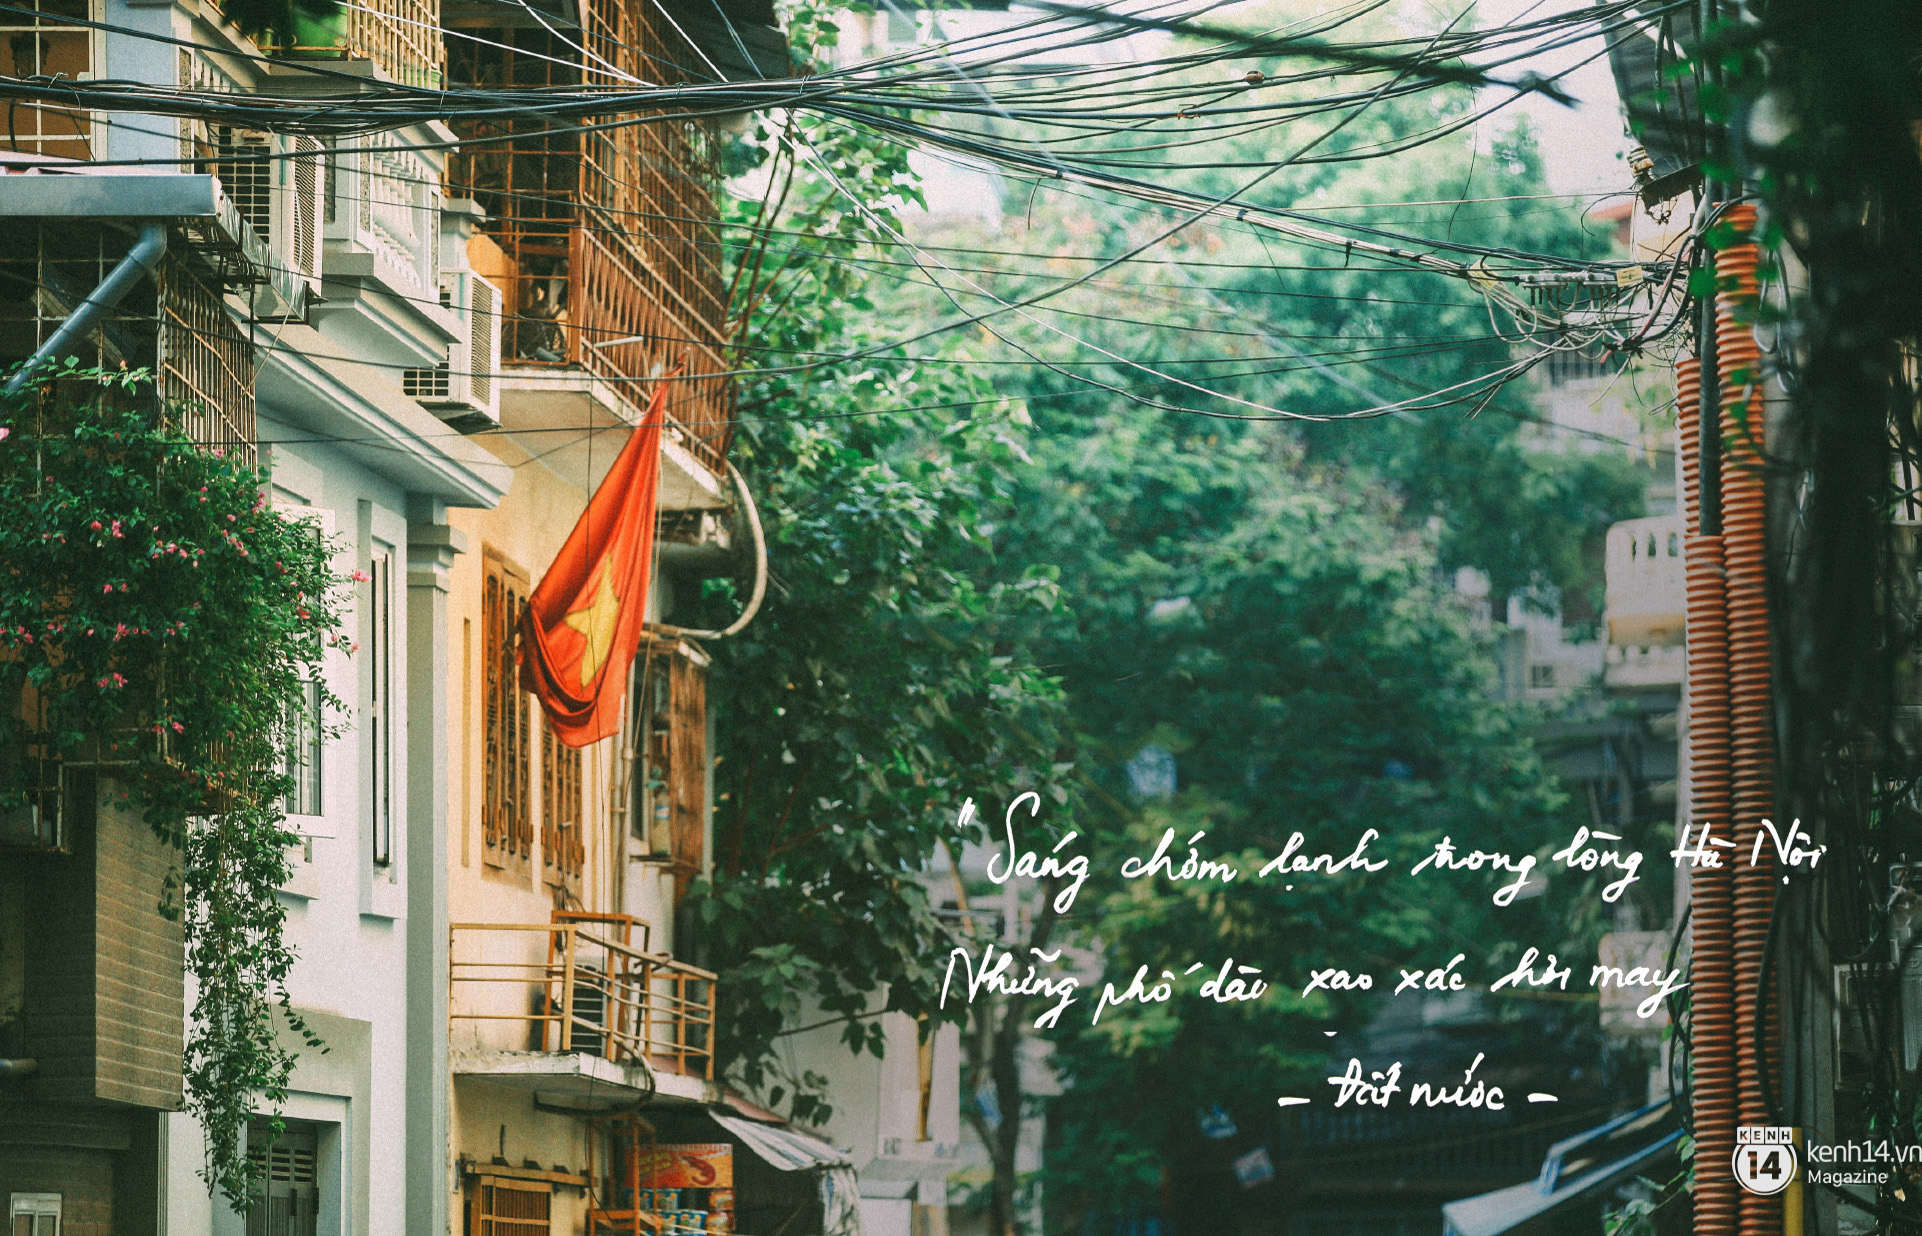 "Sáng chớm lạnh trong lòng Hà Nội
Những phố dài xao xác hơi may
- Đất nước -
KENH
14
kenh14.vn
Magazine